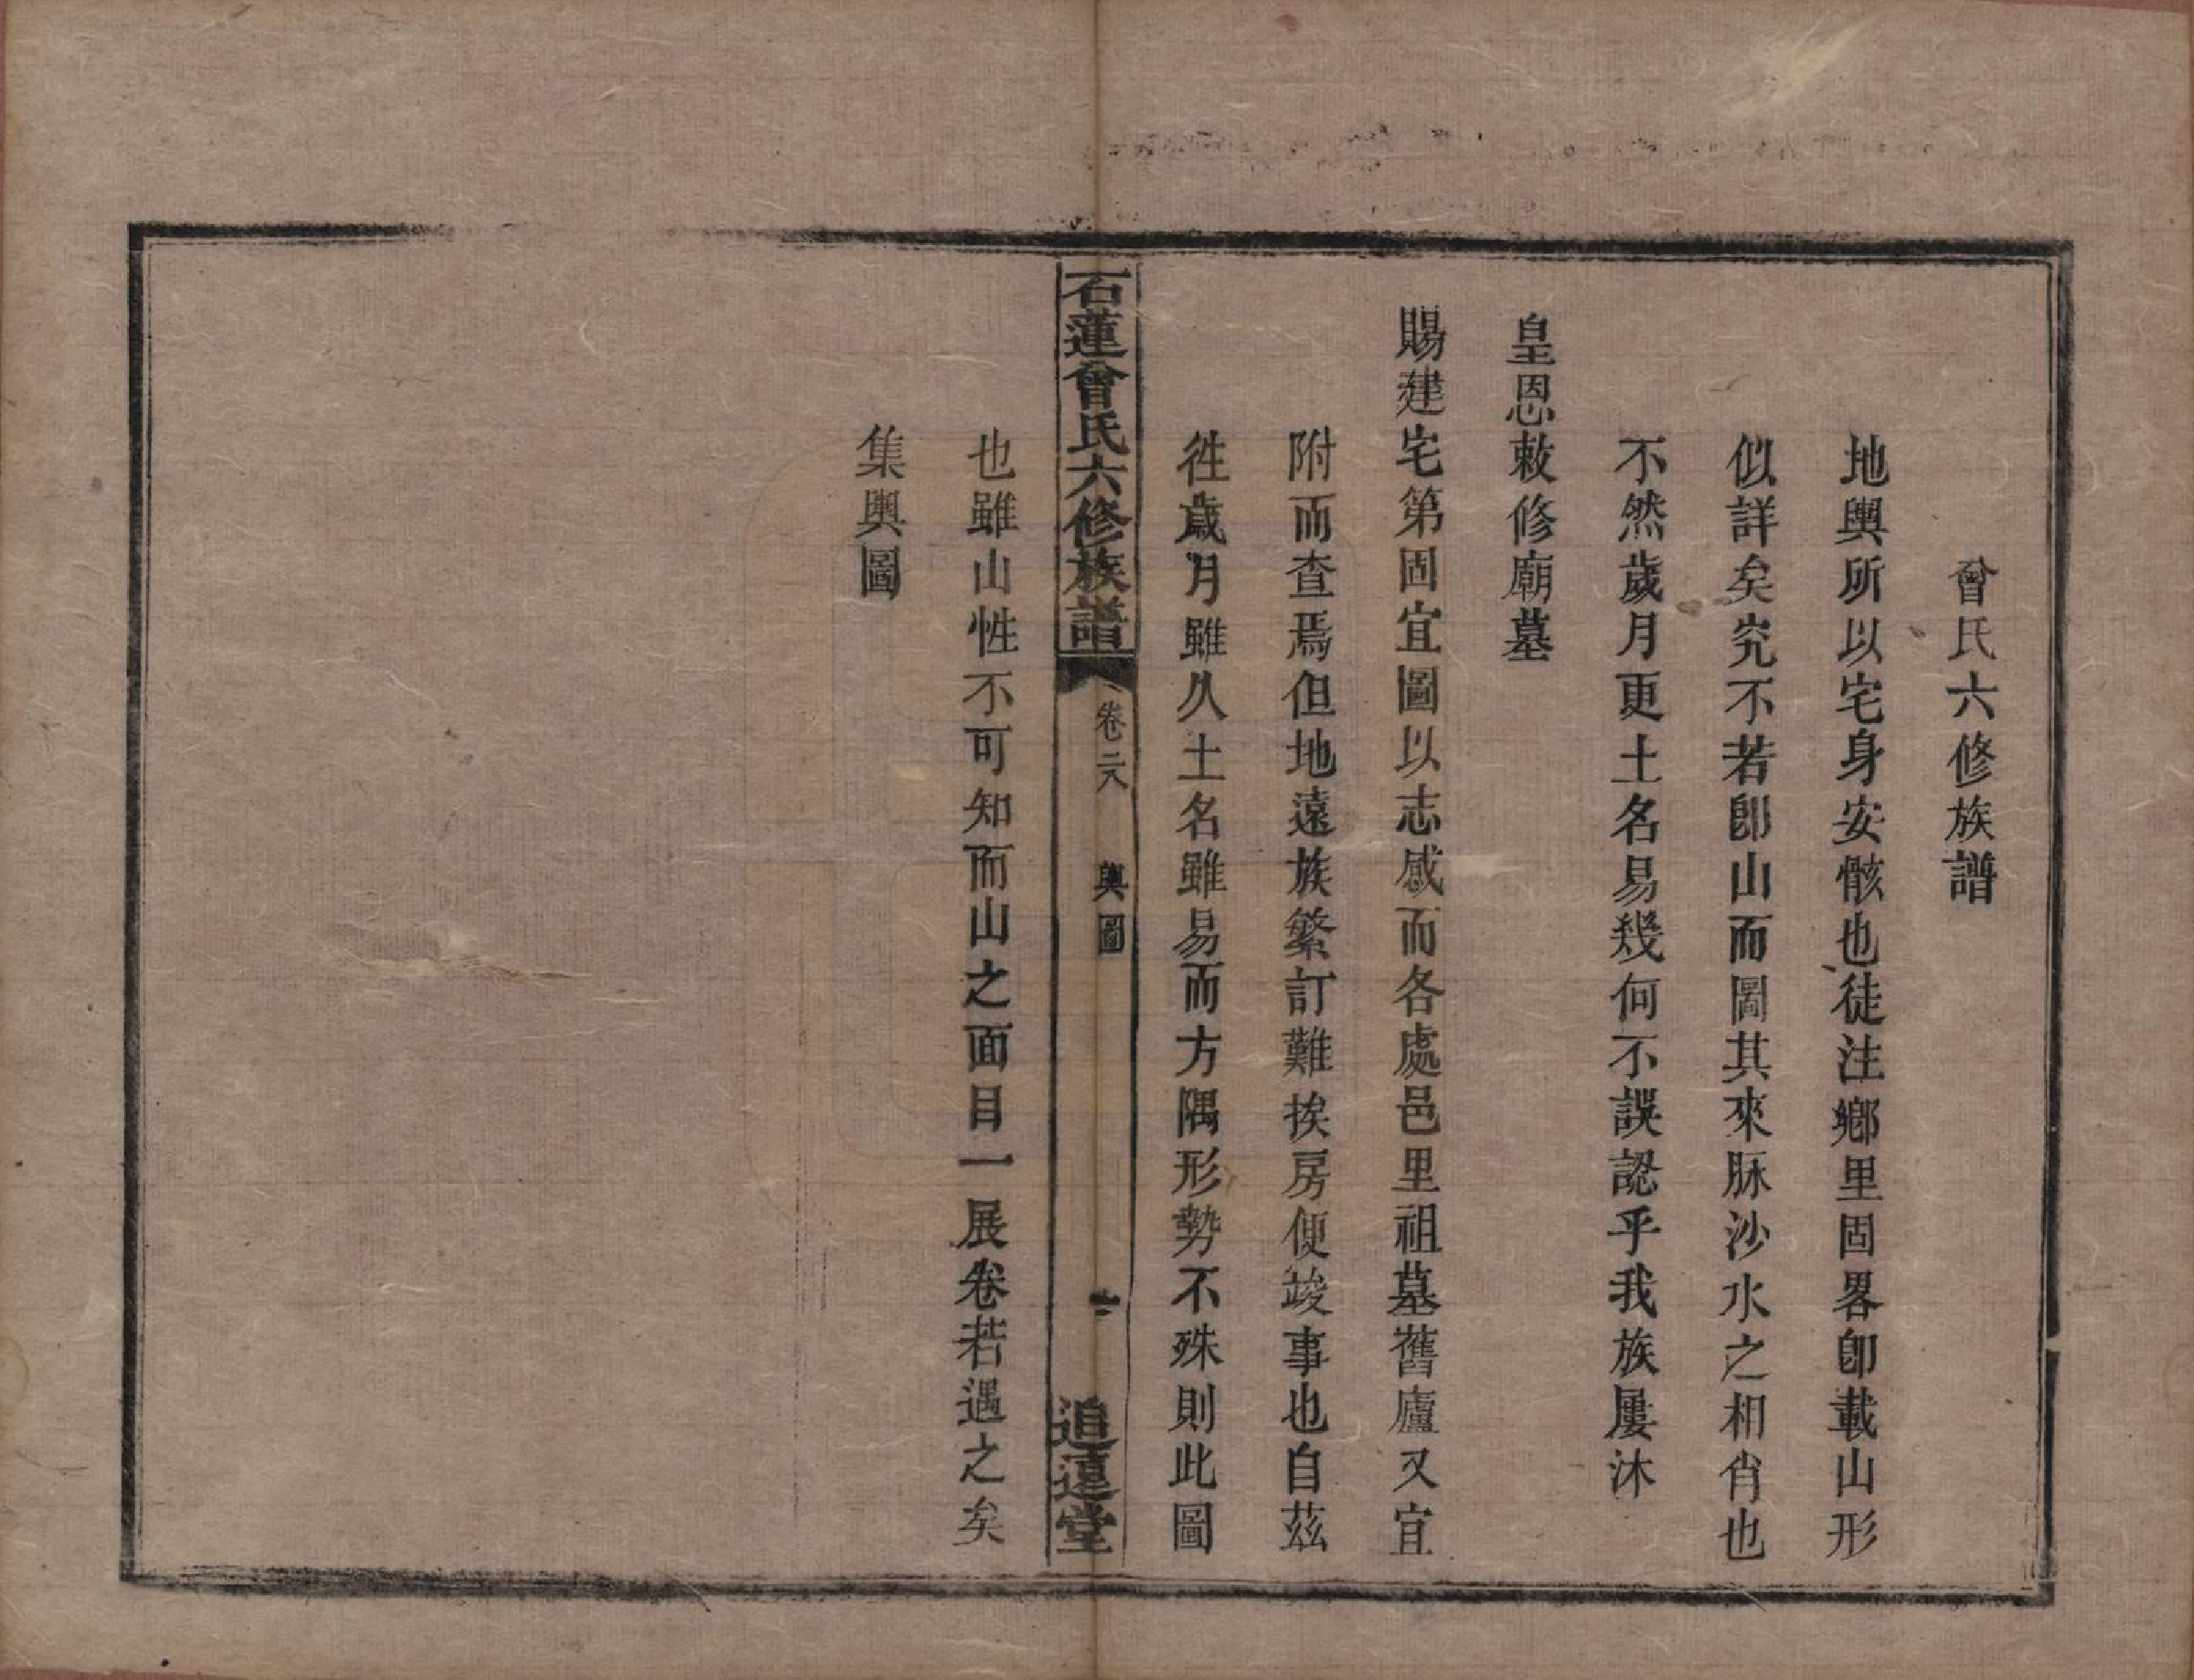 曾氏六修族譜
地輿所以宅身安骸也徒注鄉里固畧卽載山形
似詳矣究不若卽山而圖其來脉沙水之相肖也
不然歲月更土名易幾何不誤認乎我族屢沐
皇恩敕修廟墓
賜建宅第固宜圖以志感而各處邑里祖墓舊廬又宜
附而查焉但地遠族繁訂難挨房便竣事也自茲
徃歲月雖久土名雖易而方隅形勢不殊則此圖
石蓮曾氏六修族譜
卷二八
輿圖
一
追遠堂
也雖山性不可知而山之面目一展卷若遇之矣
集輿圖